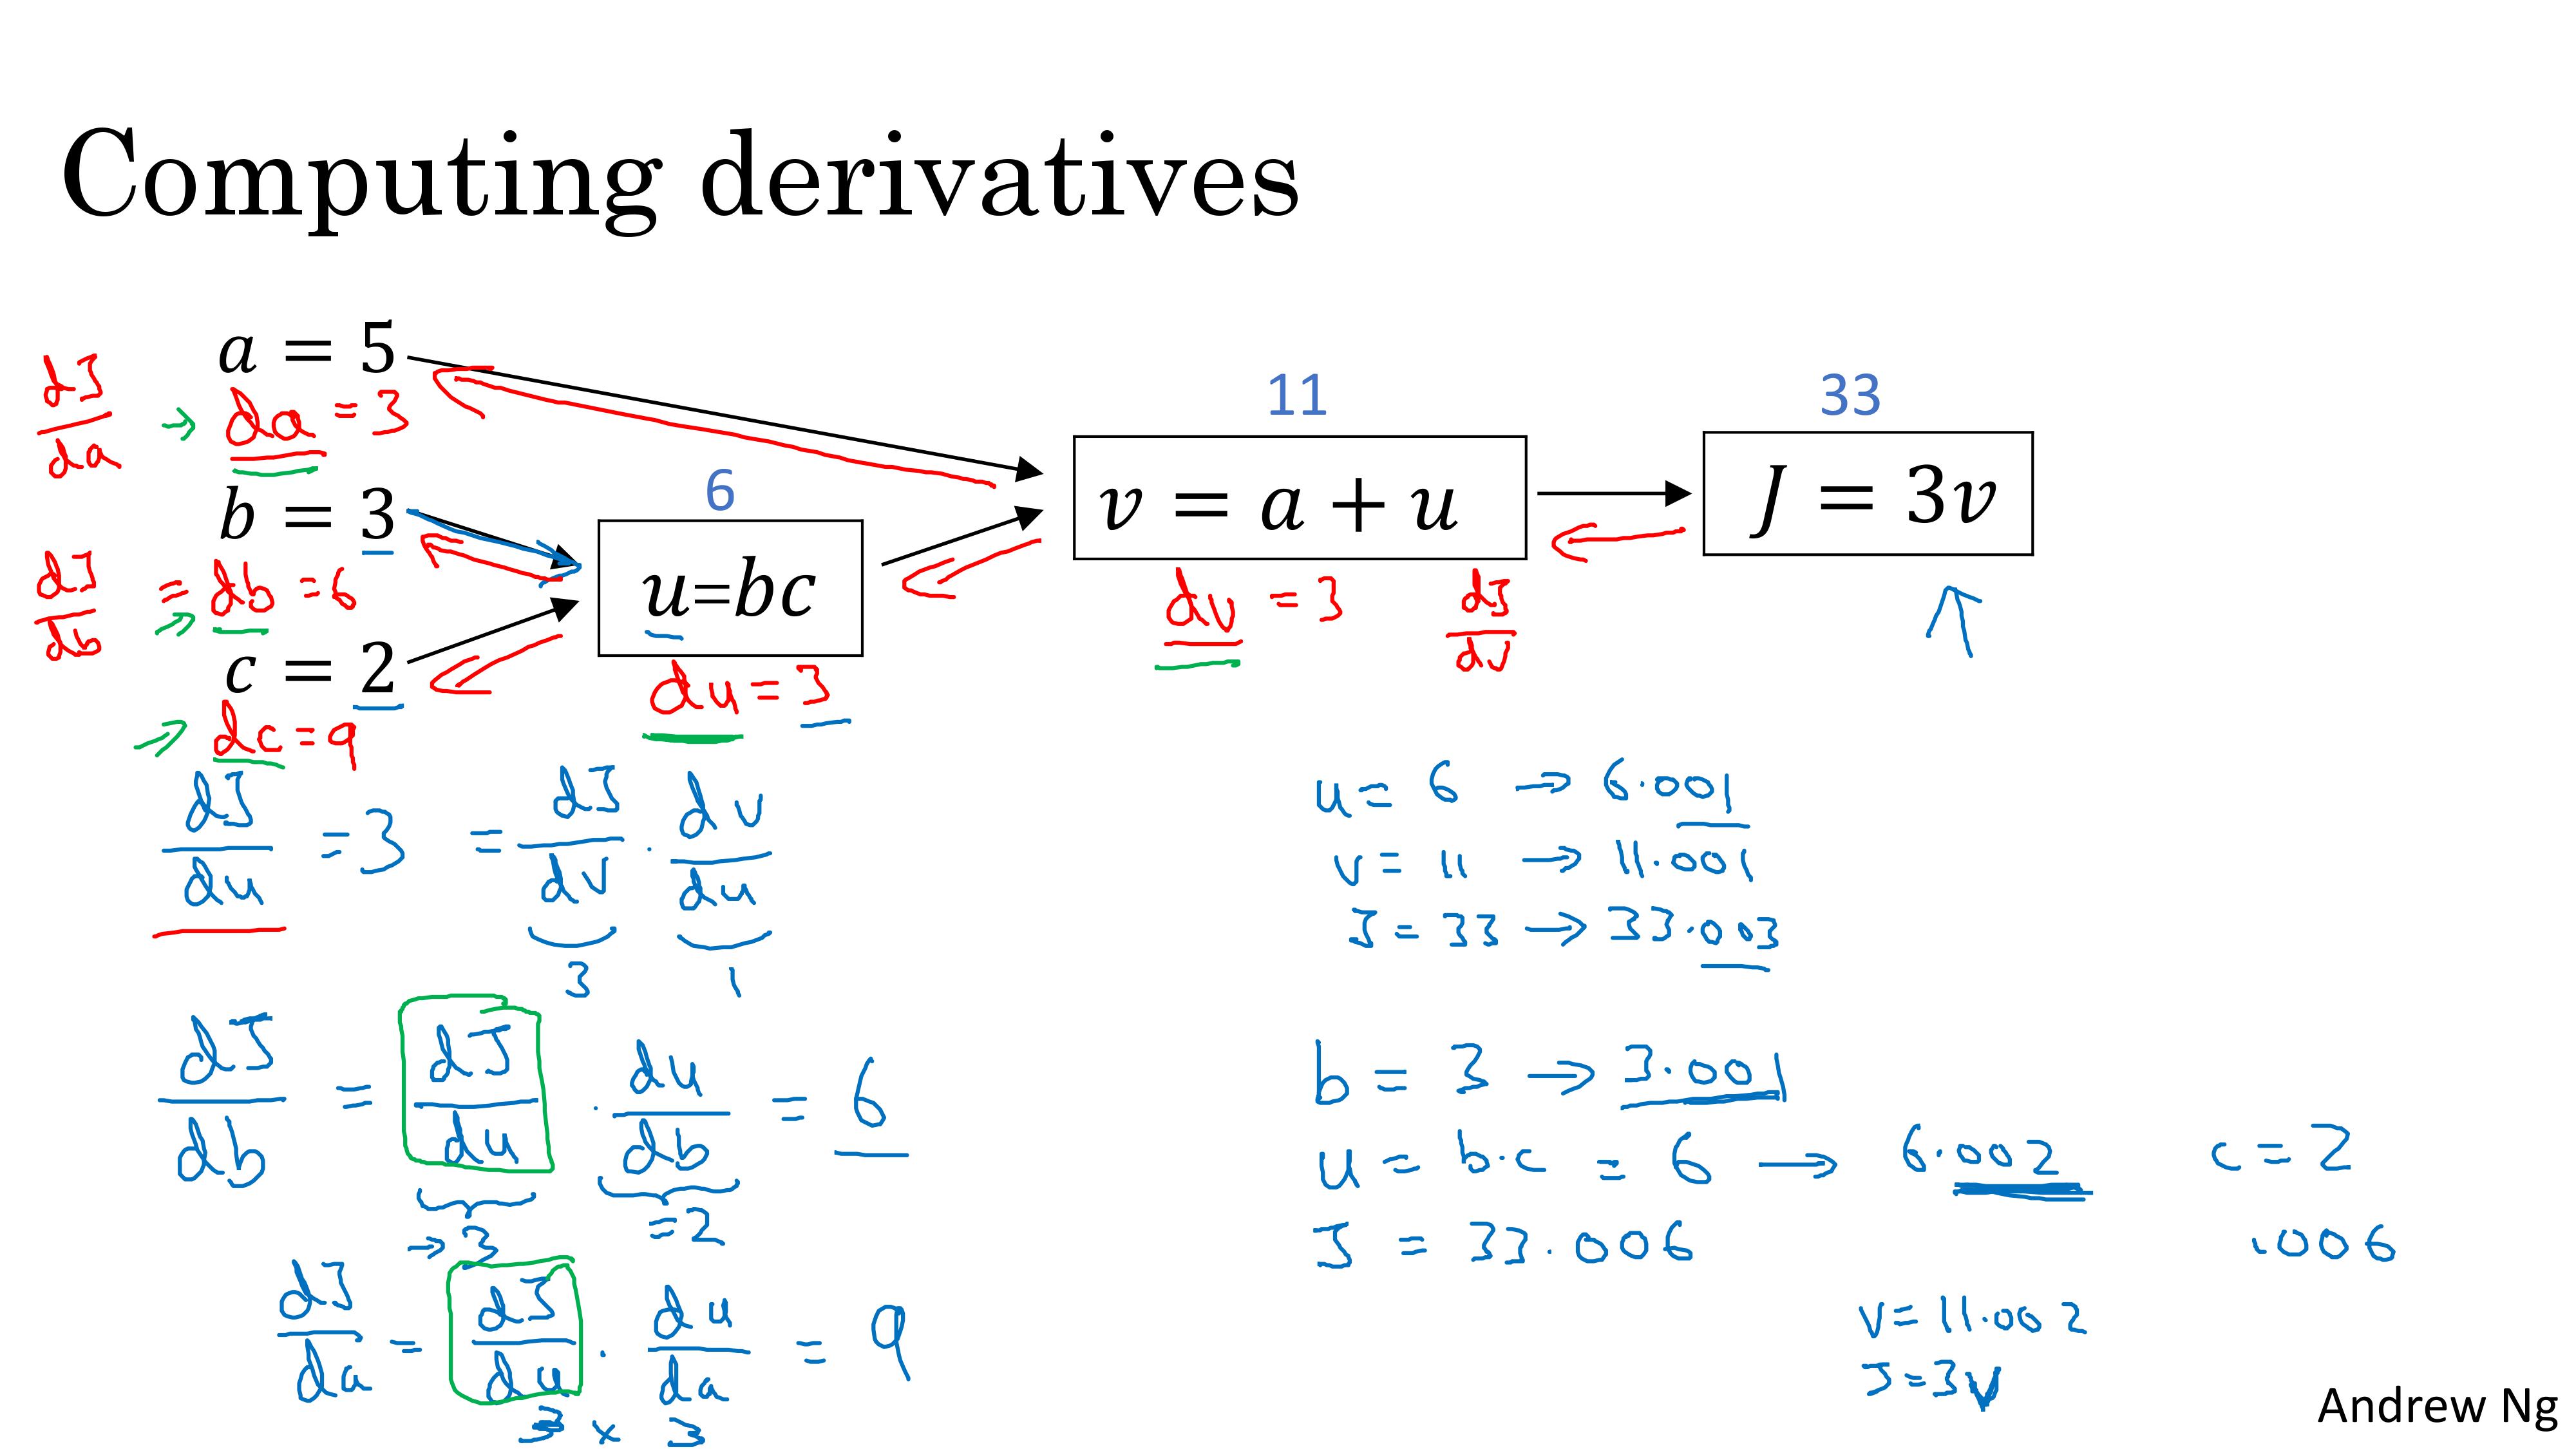 Computing derivatives
a = 5
dJ/da → da = 3
b = 3
dJ/db = db = 6
⇒
c = 2
⇒ dc = 9
6
u=bc
du = 3
11
v = a + u
dv = 3 dJ/dv
33
J = 3v
dJ/du = 3 = dJ/dv · dv/du
3 1
dJ/db = dJ/du · du/db = 6
→ 3 = 2
dJ/da = dJ/du · du/da = 9
3 × 3
u = 6 → 6.001
v = 11 → 11.001
J = 33 → 33.003
b = 3 → 3.001
u = b·c = 6 → 6.002 c = 2
J = 33.006 .006
v = 11.002
J = 3v
Andrew Ng